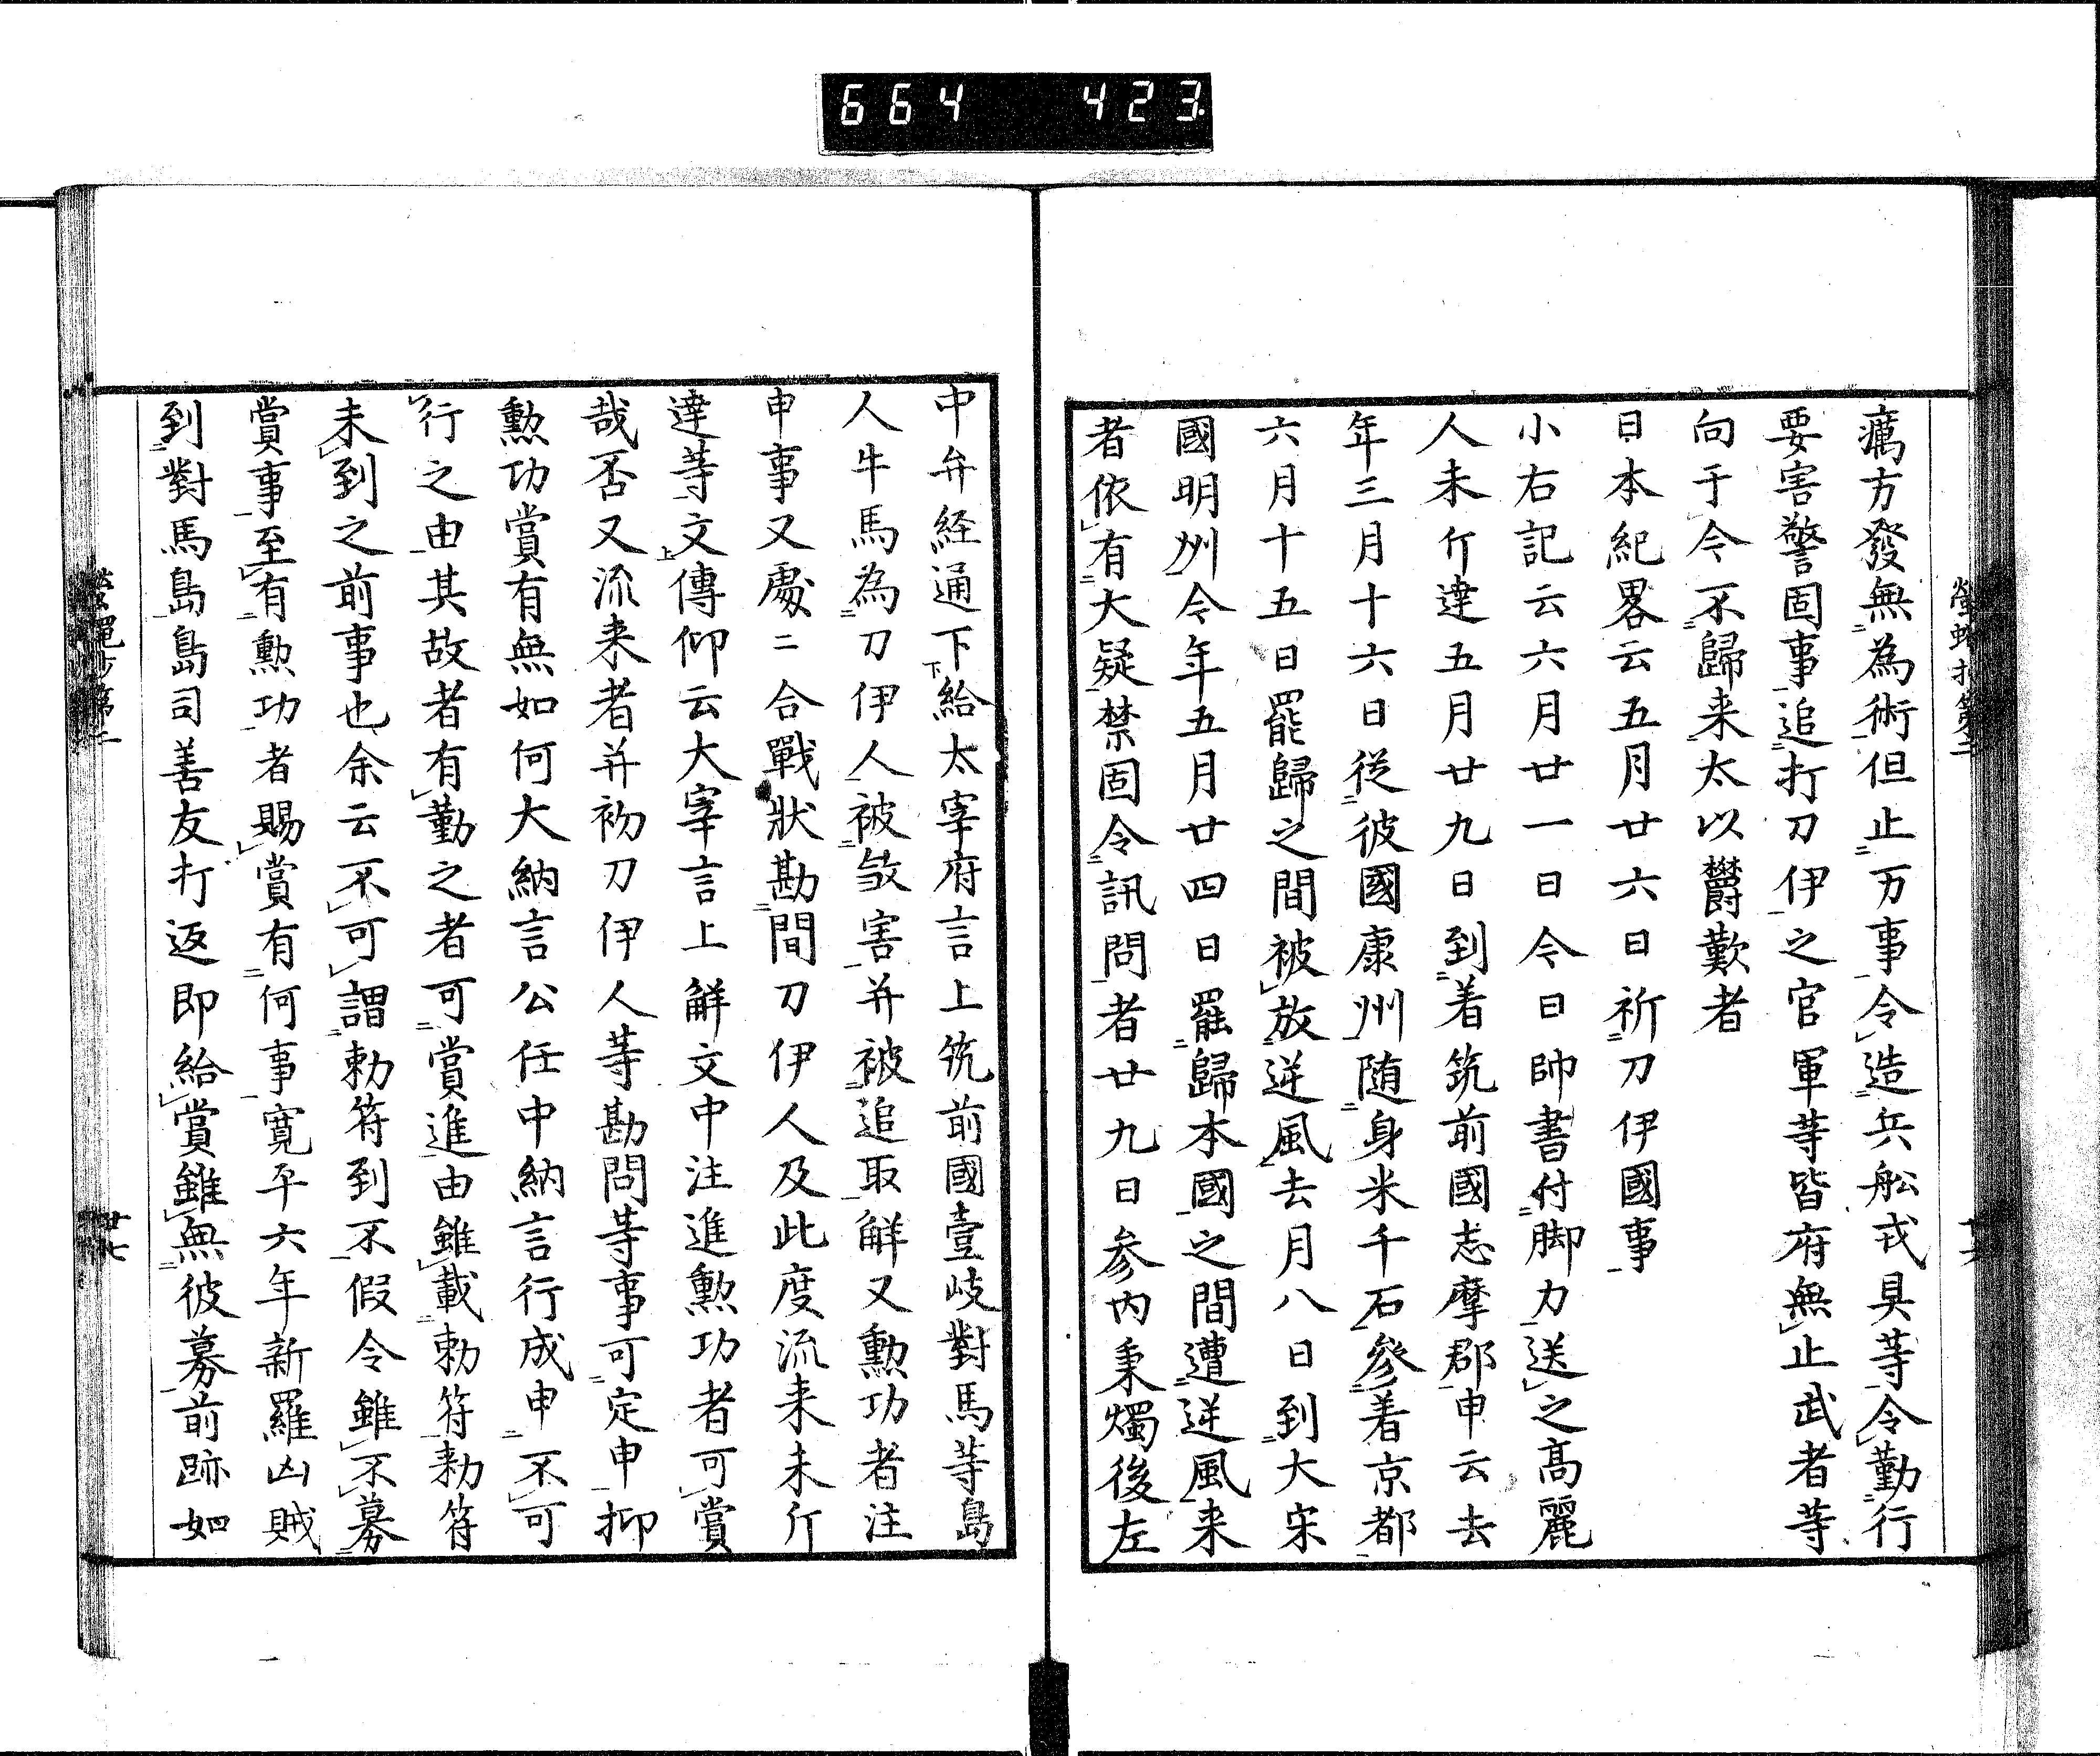 664 423
癘方發無為術但止万事令造兵舩戎具等令勤行
要害警固事追打刀伊之官軍等皆府無止武者等
向于今不歸来太以欝歎者
日本紀畧云五月廿六日祈刀伊國事
小右記云六月廿一日今日帥書付脚力送之高麗
人未斤達五月廿九日到着筑前國志摩郡申云去
年三月十六日従彼國康州随身米千石參着京都
六月十五日罷歸之間被放逆風去月八日到大宋
國明州今年五月廿四日罷歸本國之間遭逆風来
者依有大疑禁固令訊問者廿九日参内秉燭後左
中弁経通下給太宰府言上筑前國壹岐對馬等島
人牛馬為刀伊人被殺害并被追取解又勲功者注
申事又處二合戰狀勘問刀伊人及此度流来未斤
達等文傳仰云大宰言上解文中注進勲功者可賞
哉否又流来者并初刀伊人等勘問等事可定申抑
勲功賞有無如何大納言公任中納言行成申不可
行之由其故者有勤之者可賞進由雖載勅符勅符
未到之前事也余云不可謂勅符到不假令雖不募
賞事至有勲功者賜賞有何事寛平六年新羅凶賊
到對馬島島司善友打返即給賞雖無彼募前跡如
第二
廿七